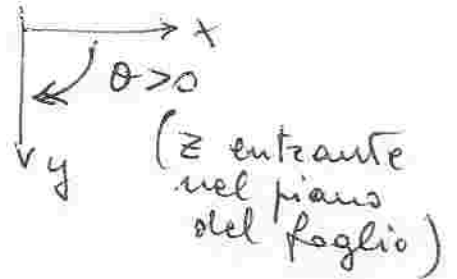 x
θ>0
y
(z entrante
nel piano
del foglio)